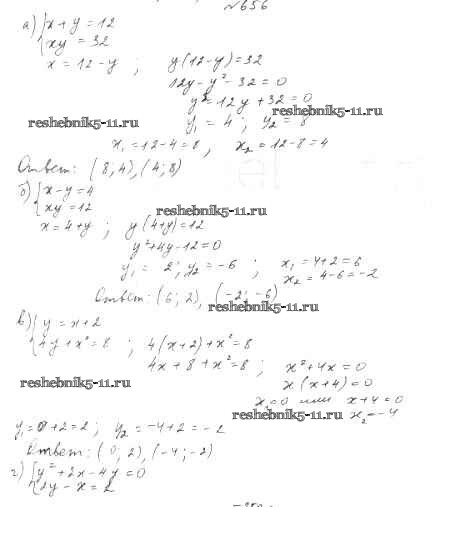 №656
а) { x + y = 12
xy = 32
x = 12 - y ; y(12 - y) = 32
12y - y² - 32 = 0
y² = 12y + 32 = 0
reshebnik5-11.ru
reshebnik5-11.ru
y₁ = 4 ; y₂ = 8
x₁ = 12 - 4 = 8 , x₂ = 12 - 8 = 4
Ответ: (8; 4), (4; 8)
б) { x - y = 4
xy = 12
reshebnik5-11.ru
x = 4 + y ; y(4 + y) = 12
y² + 4y - 12 = 0
y₁ = 2; y₂ = -6 ; x₁ = 4 + 2 = 6
x₂ = 4 - 6 = -2
Ответ: (6; 2), (-2; -6)
reshebnik5-11.ru
в) { y = x + 2
4y + x² = 8 ; 4(x + 2) + x² = 8
4x + 8 + x² = 8 ; x² + 4x = 0
reshebnik5-11.ru
x(x + 4) = 0
x₁ = 0 или x + 4 = 0
reshebnik5-11.ru
x₂ = -4
y₁ = 0 + 2 = 2 ; y₂ = -4 + 2 = -2
Ответ: (0; 2), (-4; -2)
г) { y² + 2x - 4y = 0
2y - x = 2